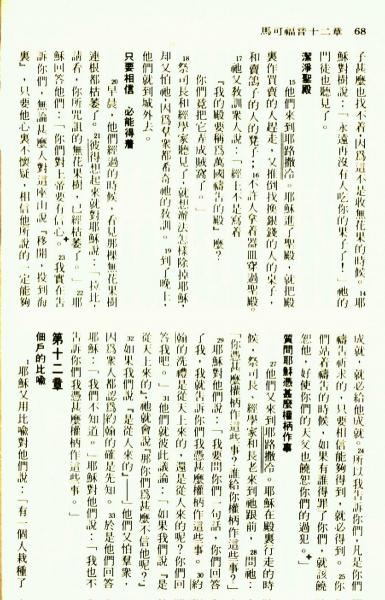 馬可福音十二章　68
子甚麼也找不着，因爲這不是收無花果的時候。14耶
穌對樹說：「永遠再沒有人吃你的果子了！」祂的
門徒也聽見了。
潔淨聖殿
15他們來到耶路撒冷。耶穌進了聖殿，就把殿
裏作買賣的人趕走，又推倒找換銀錢的人的桌子，
和賣鴿子的人的凳子；16不許人拿着器皿穿過聖殿。
17祂又教訓衆人說：「經上不是寫着
『我的殿要稱爲萬國禱告的殿』麼？
你們竟把它弄成賊窩了。」
18祭司長和經學家聽見了，就想辦法怎樣除掉耶穌，
却又怕祂，因爲羣衆都希奇祂的教訓。19到了晚上，
他們就到城外去。
只要相信　必能得着
20早晨，他們經過的時候，看見那棵無花果樹
連根都枯萎了。21彼得想起來就對耶穌說：「拉比，
請看，你所咒詛的無花果樹，已經枯萎了。」22耶
穌回答他們：「你們對上帝要有信心。23我實在告
訴你們，無論甚麼人對這座山說『移開，投到海
裏』，只要他心裏不懷疑，相信他所說的一定能夠
成，就必給他成就。24所以我告訴你們，凡是你們
禱告祈求的，只要相信能夠得到，就必得到。25你
們站着禱告的時候，如果有誰得罪了你們，就該饒
恕他，好使你們的天父也饒恕你們的過犯。」
質問耶穌憑甚麼權柄作事
27他們又來到耶路撒冷。耶穌在殿裏行走的時
候，祭司長、經學家和長老來到祂跟前，28問祂：
「你憑甚麼權柄作這些事？誰給你權柄作這些事？」
29耶穌對他們說：「我要問你們一句話，你們回答
了我，我就告訴你們我憑甚麼權柄作這些事。30約
翰的洗禮是從天上來的，還是從人來的呢？你們回
答我吧。」31他們就彼此議論：「如果我們說『是
從天上來的』，祂就會說『那你們爲甚麼不信他呢？』
32如果我們說『是從人來的』——他們又怕羣衆，
因爲衆人都認爲約翰的確是先知。33於是他們回答
耶穌：「我們不知道。」耶穌對他們說：「我也不
告訴你們我憑甚麼權柄作這些事。」
第十二章
佃戶的比喩
1耶穌又用比喩對他們說：「有一個人栽種了